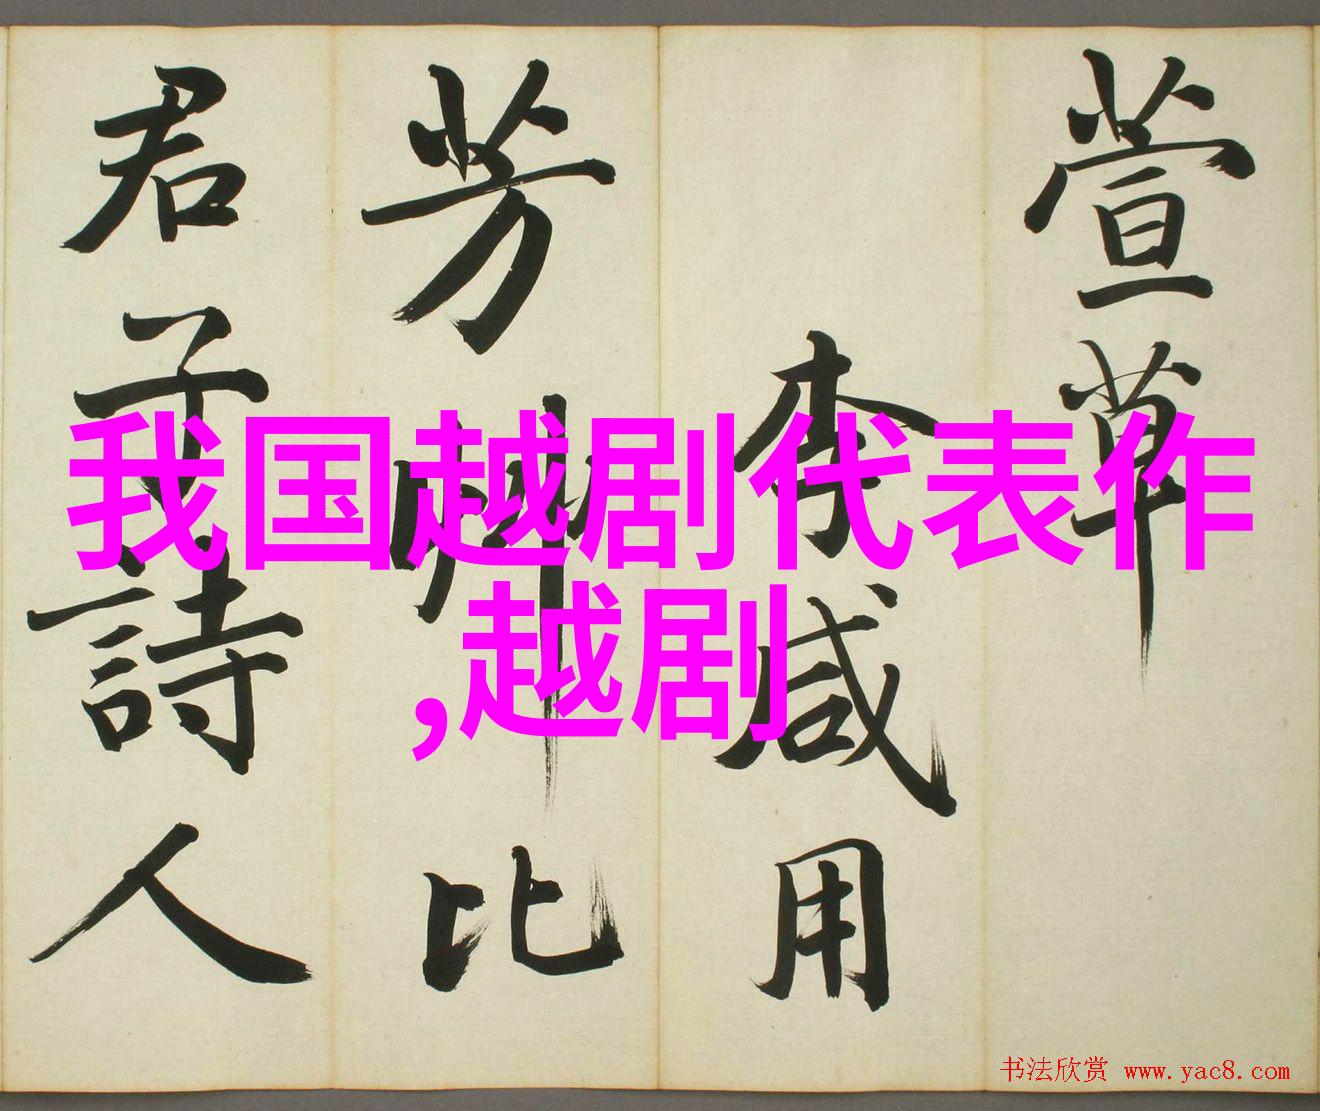 萱草
李咸用
芳草比
君子詩人
我国越剧代表作
,越剧
书法欣赏 www.yac8.com